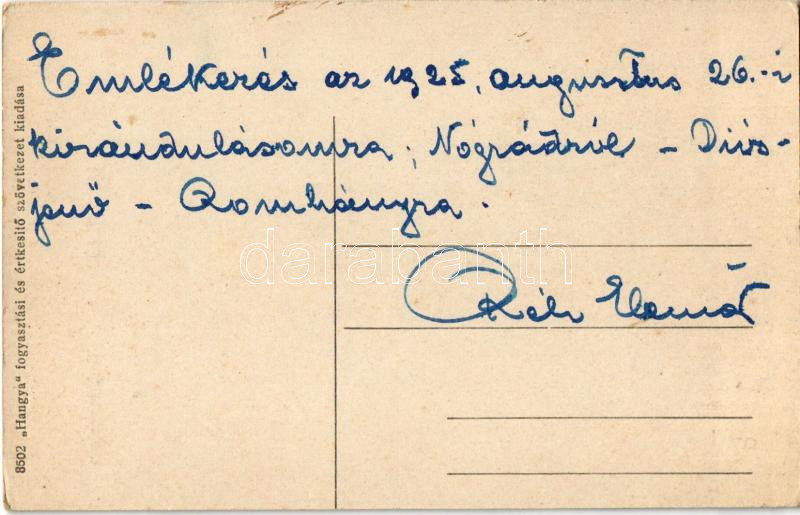 Emlékezés az 1925. augusztus 26.-i
kirándulásomra; Nógrádról - Diós-
jenő - Romhányra.
Elemér
8502 „Hangya“ fogyasztási és értkesitő szövetkezet kiadása
darabanth